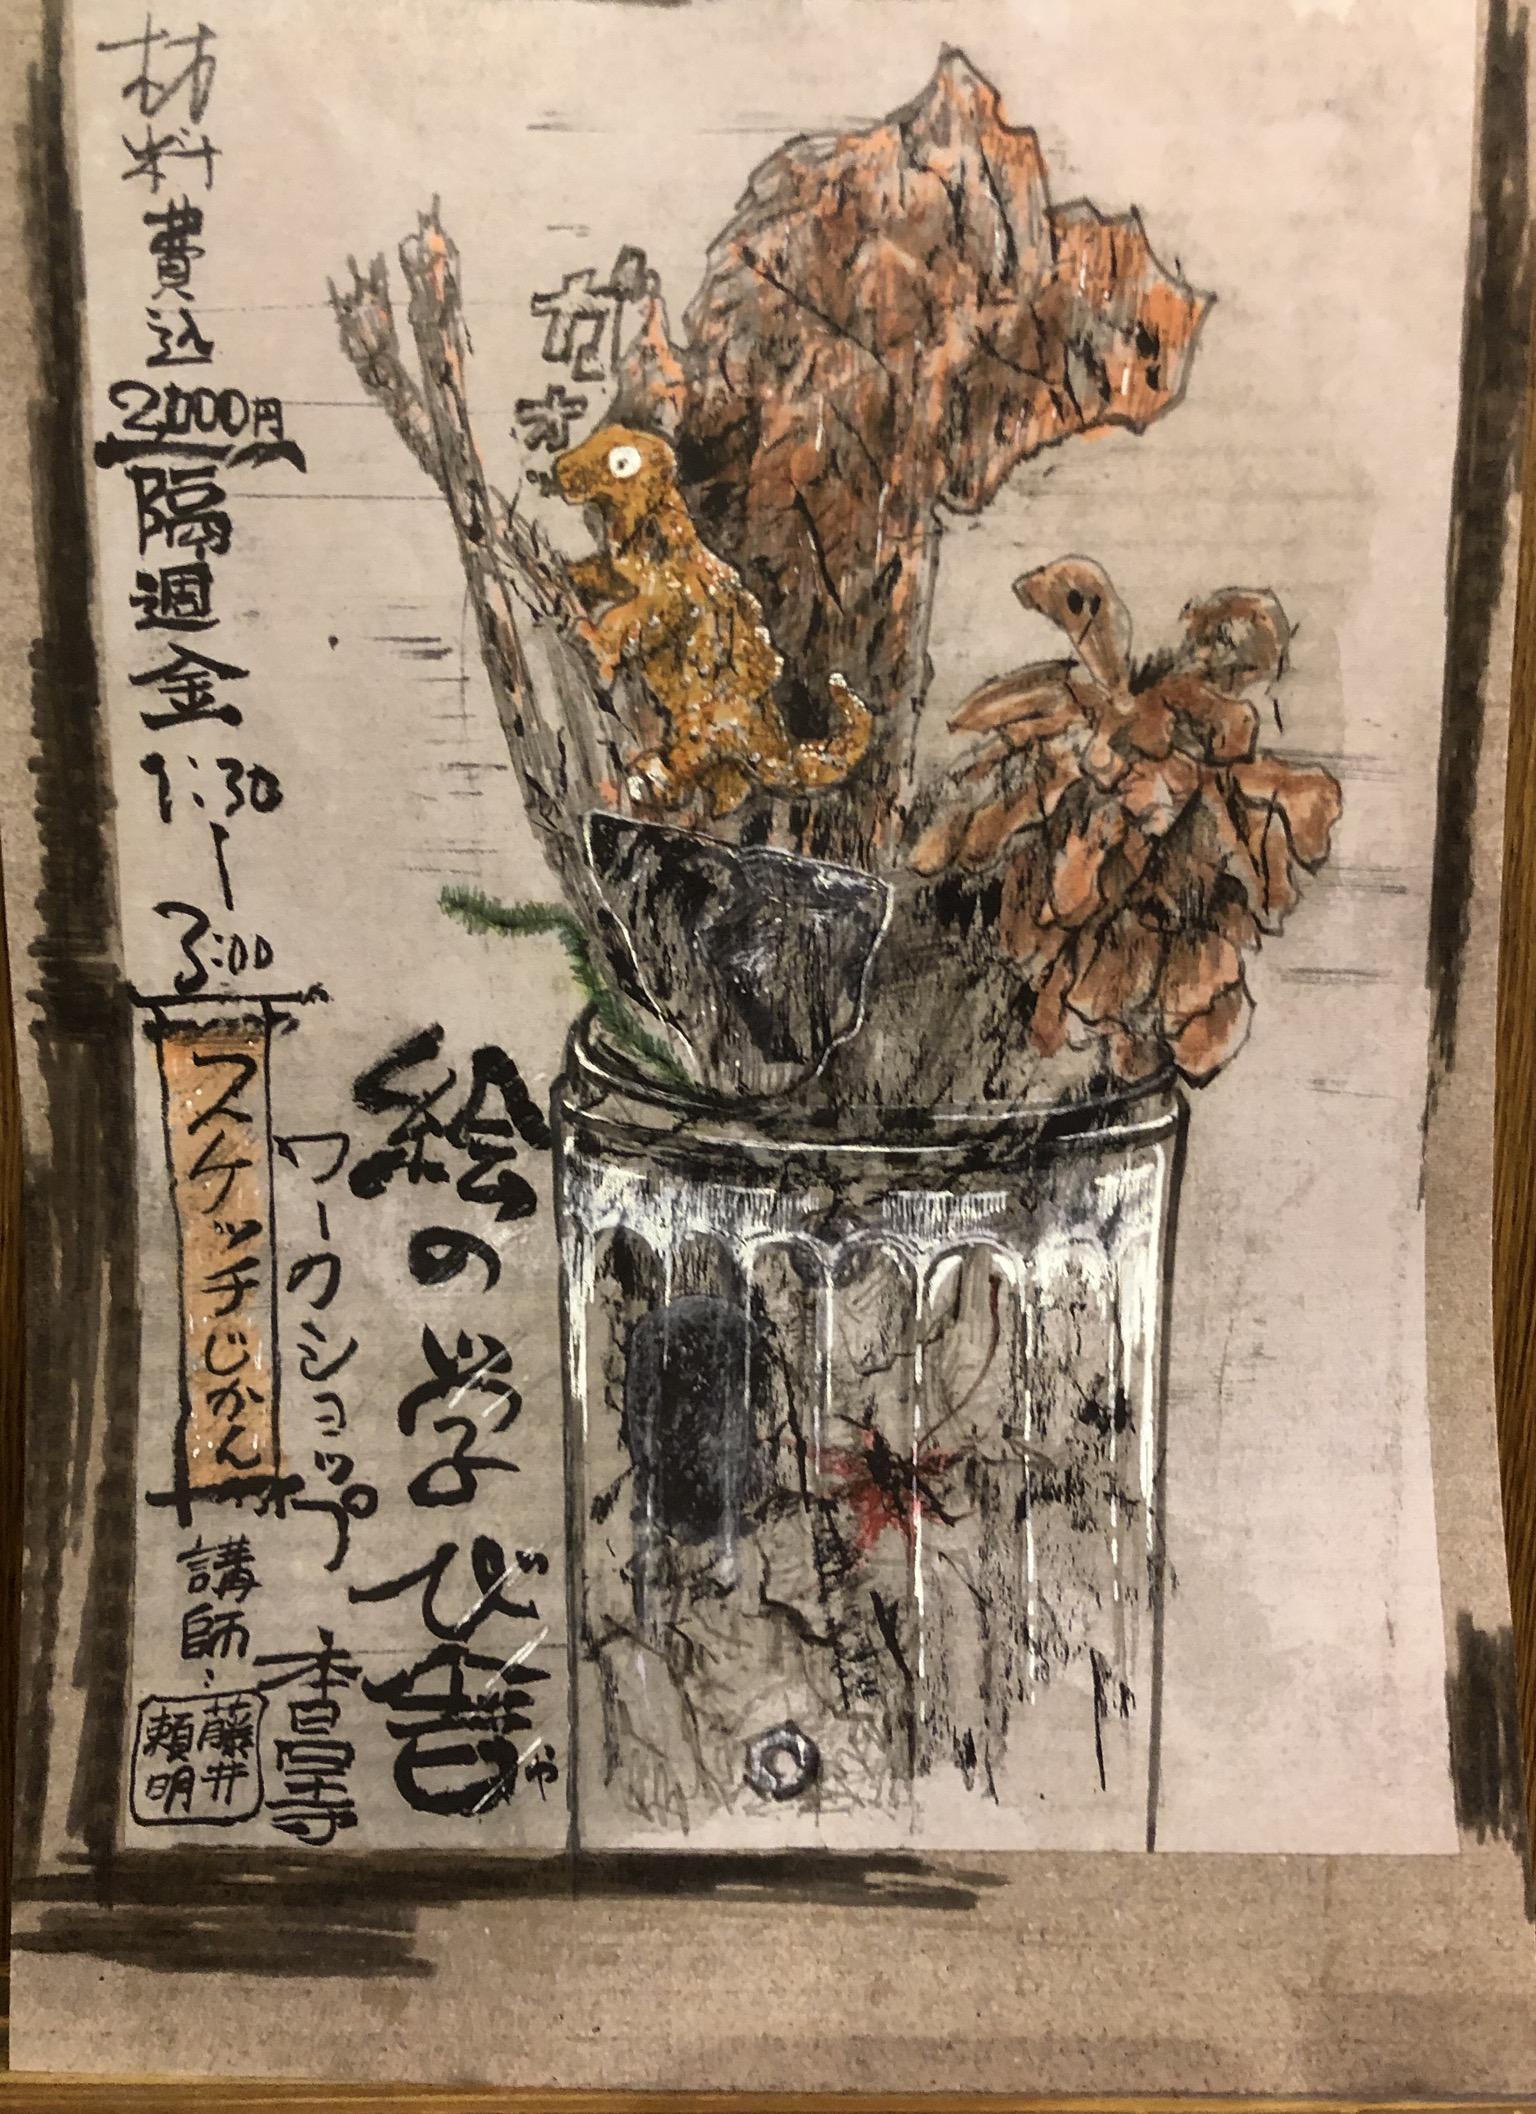 ガオ…
絵の学び舎
や
ワークショップ
本昌寺
スケッチじかん
講師:
藤井
頼明
材料費込
2,000円
隔週金
1:30
|
3:00